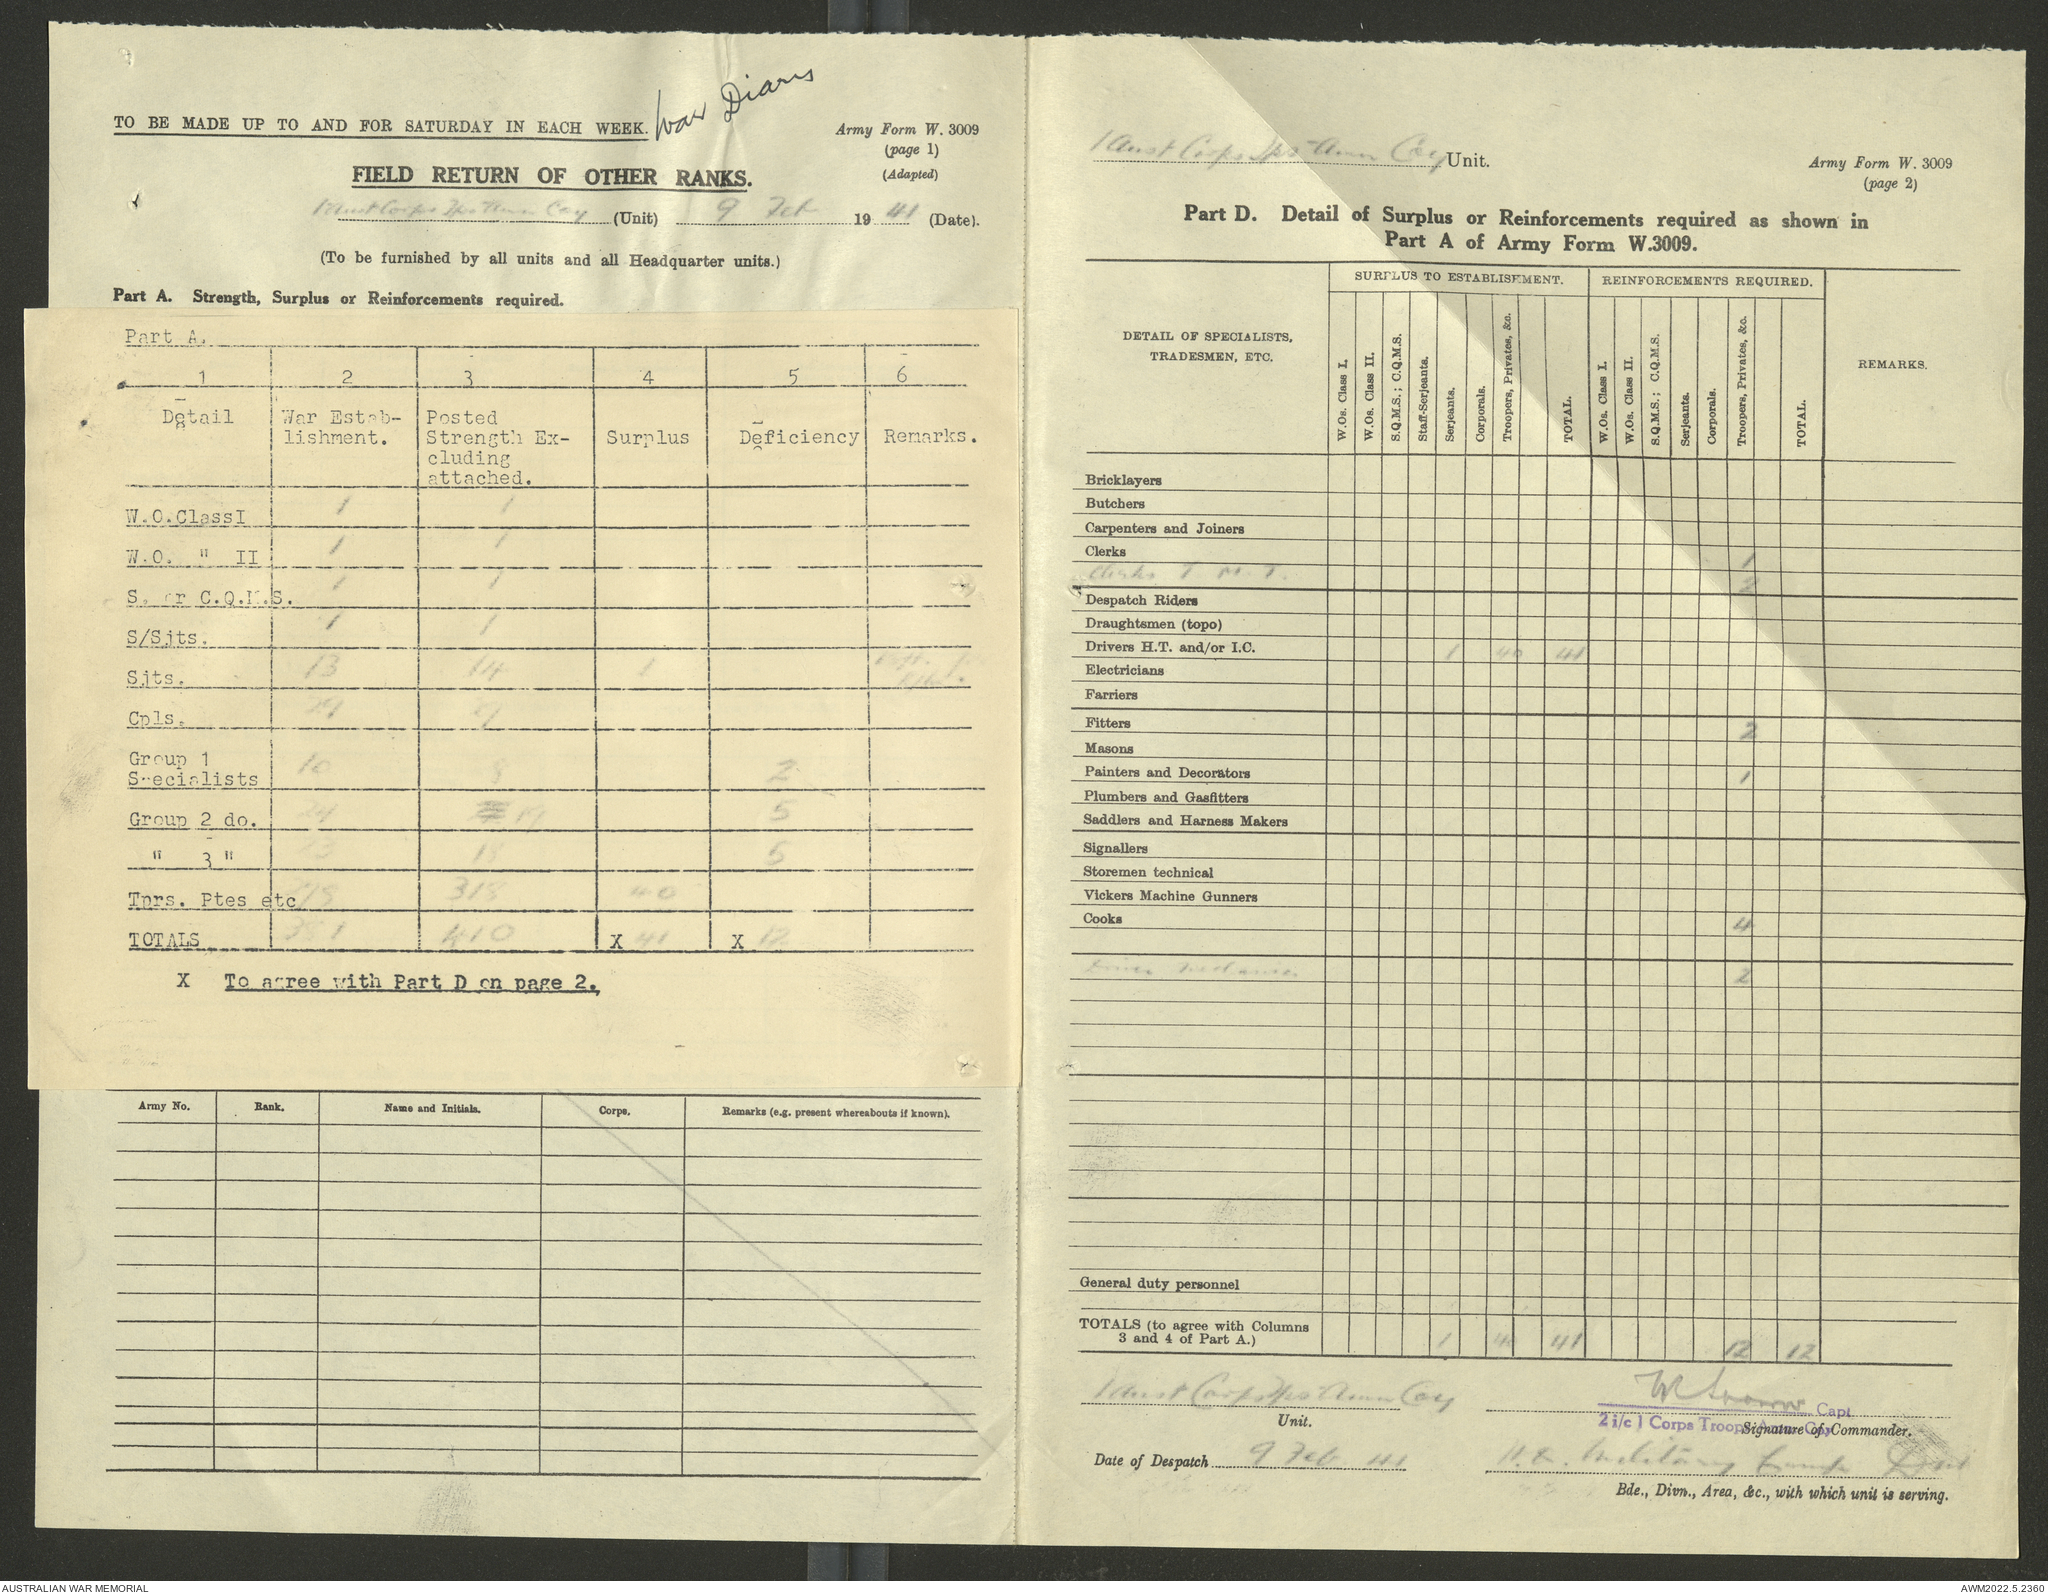 War Diary
TO BE MADE UP TO AND FOR SATURDAY IN EACH WEEK.
Army Form W. 3009
(page 1)
(Adapted)
FIELD RETURN OF OTHER RANKS.
1 Aust Corps Tps Amn Coy (Unit) 9 Feb 1941 (Date).
(To be furnished by all units and all Headquarter units.)
Part A. Strength, Surplus or Reinforcements required.
Part A.
1 2 3 4 5 6
Detail War Estab-lishment. Posted Strength Ex-cluding attached. Surplus Deficiency Remarks.
W.O.ClassI 1 1
W.O. " II 1 1
S. or C.Q.M.S. 1 1
S/Sjts. 1 1
Sjts. 13 14 1
Cpls. 29
Group 1 Specialists 10 8 2
Group 2 do. 24 19 5
" 3 " 23 18 5
Tprs. Ptes etc 318 40
TOTALS 381 410 X 41 X 12
X To agree with Part D on page 2.
Army No. Rank. Name and Initials. Corps. Remarks (e.g. present whereabouts if known).
1 Aust Corps Tps Amn Coy Unit.
Army Form W. 3009
(page 2)
Part D. Detail of Surplus or Reinforcements required as shown in
Part A of Army Form W.3009.
DETAIL OF SPECIALISTS, TRADESMEN, ETC.
SURPLUS TO ESTABLISHMENT.
REINFORCEMENTS REQUIRED.
REMARKS.
W.Os. Class I.
W.Os. Class II.
S.Q.M.S.; C.Q.M.S.
Staff-Serjeants.
Serjeants.
Corporals.
Troopers, Privates, &c.
TOTAL.
W.Os. Class I.
W.Os. Class II.
S.Q.M.S.; C.Q.M.S.
Serjeants.
Corporals.
Troopers, Privates, &c.
TOTAL.
Bricklayers
Butchers
Carpenters and Joiners
Clerks 1
Clerks T. M.T. 2
Despatch Riders
Draughtsmen (topo)
Drivers H.T. and/or I.C. 1 40 41
Electricians
Farriers
Fitters 2
Masons
Painters and Decorators 1
Plumbers and Gasfitters
Saddlers and Harness Makers
Signallers
Storemen technical
Vickers Machine Gunners
Cooks 4
Driver Mechanics 2
General duty personnel
TOTALS (to agree with Columns
3 and 4 of Part A.) 1 40 41 12 12
1 Aust Corps Tps Amn Coy
Unit.
Capt
2 i/c 1 Corps Troops Amn Coy
Signature of Commander.
Date of Despatch 9 Feb 41
Military Camp
Bde., Divn., Area, &c., with which unit is serving.
AUSTRALIAN WAR MEMORIAL
AWM2022.5.2360